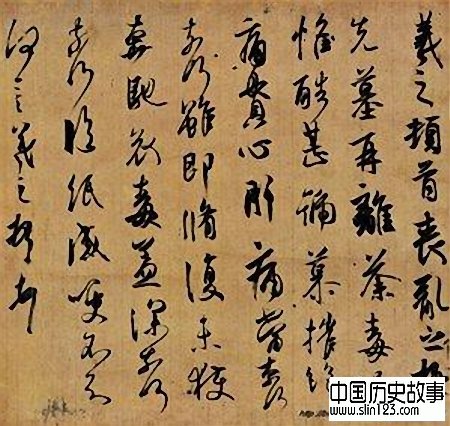 羲之頓首喪亂之極
先墓再離荼毒
惟酷甚號慕摧絕
痛貫心肝痛當奈何
奈何雖即脩復未獲
奔馳哀毒益深奈何
奈何臨紙感哽不知
何言羲之頓首
中国历史故事
www.slin123.com